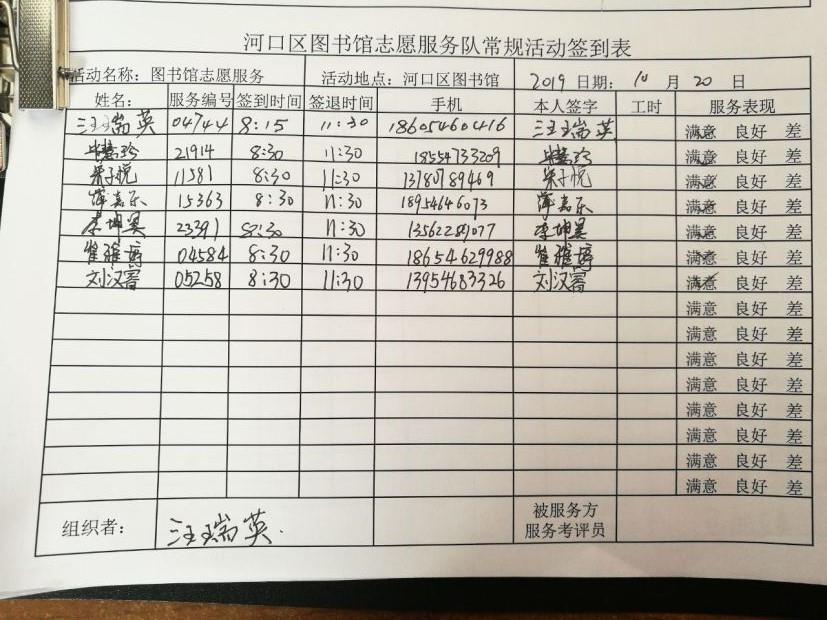 河口区图书馆志愿服务队常规活动签到表
活动名称：图书馆志愿服务 活动地点：河口区图书馆 2019 日期： 10 月 20 日
姓名： 服务编号 签到时间 签退时间 手机 本人签字 工时 服务表现
汪瑞英 04744 8:15 11:30 18605460416 汪瑞英 满意 良好 差
21914 8:30 11:30 18554733209 满意 良好 差
朱子悦 11581 8:30 11:30 13780789469 朱子悦 满意 良好 差
薄嘉乐 15363 8:30 11:30 18954646073 薄嘉乐 满意 良好 差
李坤昊 23391 8:30 11:30 13562289077 李坤昊 满意 良好 差
崔雅婷 04584 8:30 11:30 18654629988 崔雅婷 满意 良好 差
刘汉霄 05258 8:30 11:30 13954683326 刘汉霄 满意 良好 差
满意 良好 差
满意 良好 差
满意 良好 差
满意 良好 差
满意 良好 差
满意 良好 差
满意 良好 差
满意 良好 差
组织者： 汪瑞英. 被服务方
服务考评员